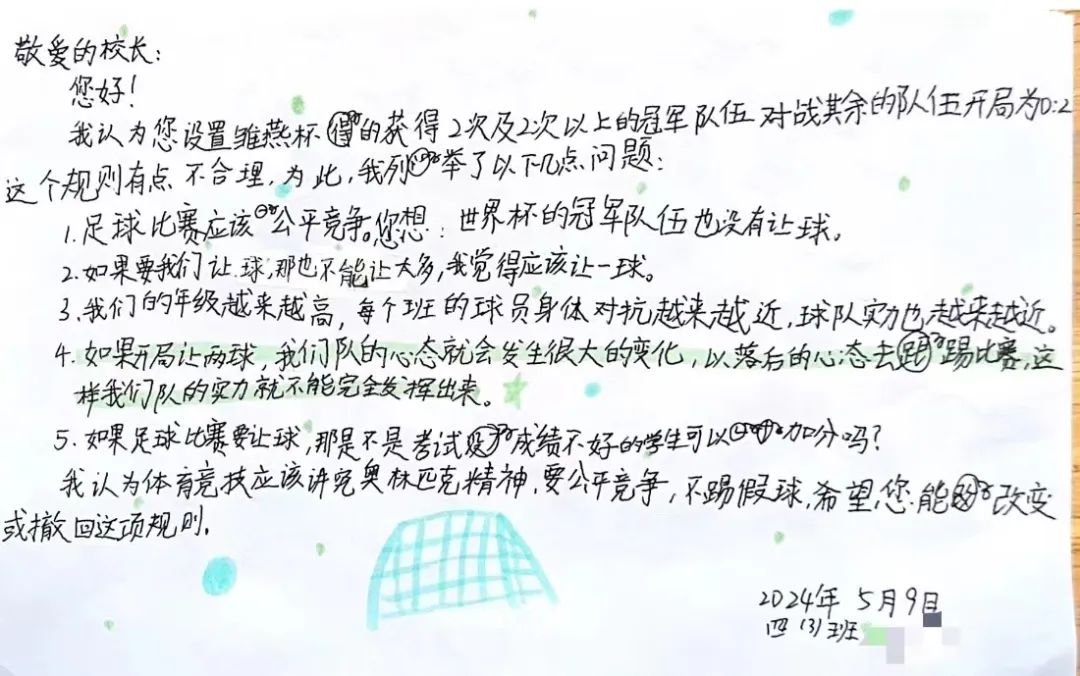 敬爱的校长:
您好!
我认为您设置雏燕杯的获得2次及2次以上的冠军队伍对战其余的队伍开局为0:2
这个规则有点不合理,为此,我列举了以下几点问题:
1.足球比赛应该公平竞争。您想:世界杯的冠军队伍也没有让球。
2.如果要我们让球,那也不能让太多,我觉得应该让一球。
3.我们的年级越来越高,每个班的球员身体对抗越来越近,球队实力也越来越近。
4.如果开局让两球,我们队的心态就会发生很大的变化,以落后的心态去踢比赛,这
样我们队的实力就不能完全发挥出来。
5.如果足球比赛要让球,那是不是考试成绩不好的学生可以加分吗?
我认为体育竞技应该讲究奥林匹克精神,要公平竞争,不踢假球,希望您能改变
或撤回这项规则。
2024年5月9日
四(3)班